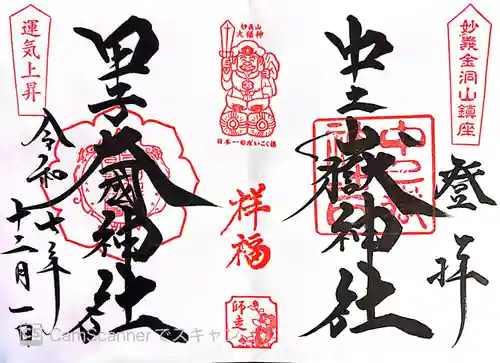 妙義金洞山鎮座
登拝
中之嶽神社
妙義山
大福神
日本一のだいこく様
祥福
師走
甲子大國神社
運気上昇
令和七年
十二月一日
CamScanner でスキャン